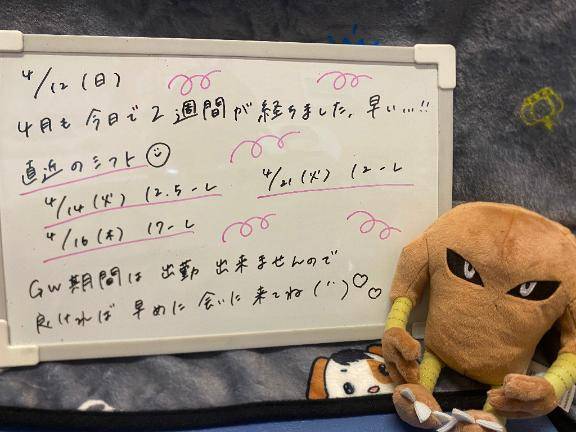 4/12(日)
4月も今日で2週間が経ちました。早い…!!
直近のシフト
4/14(火) 12.5-L
4/21(火) 12-L
4/16(木) 17-L
GW期間は出勤出来ませんので
良ければ早めに会いに来てね(¨)♡♡